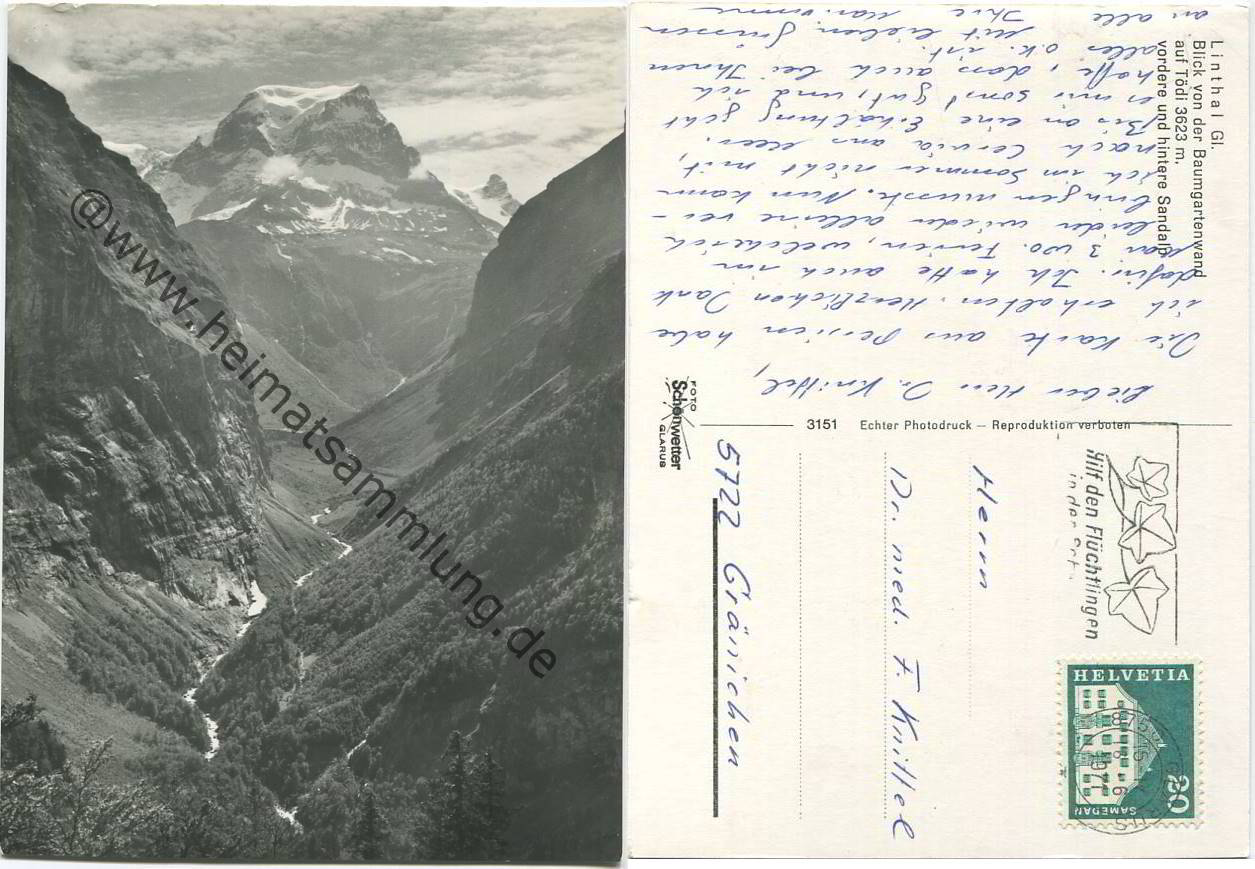 @www.heimatsammlung.de
Linthal Gl.
Blick von der Baumgartenwand
auf Tödi 3623 m.
vordere und hintere Sandalp
Lieber Herr Dr. Knittel,
Die Karte aus Persien habe
ich erhalten. Herzlichen Dank
dafür. Ich hatte auch im
3 wo. Ferien, welche ich
leider wieder alleine ver-
bringen musste. Nun kam
ich im Sommer nicht mit,
nach Cervia ans Meer.
Bis an eine Erkältung geht
es mir sonst gut, und ich
hoffe, dass auch bei Ihnen
alles o.k. ist.
Mit lieben Grüssen
an alle Ihre
FOTO
Schönwetter
GLARUS
3151 Echter Photodruck — Reproduktion verboten
Herrn
Dr. med. F. Knittel
5722 Gränichen
Hilf den Flüchtlingen
in der
HELVETIA
30
SAMEDAN